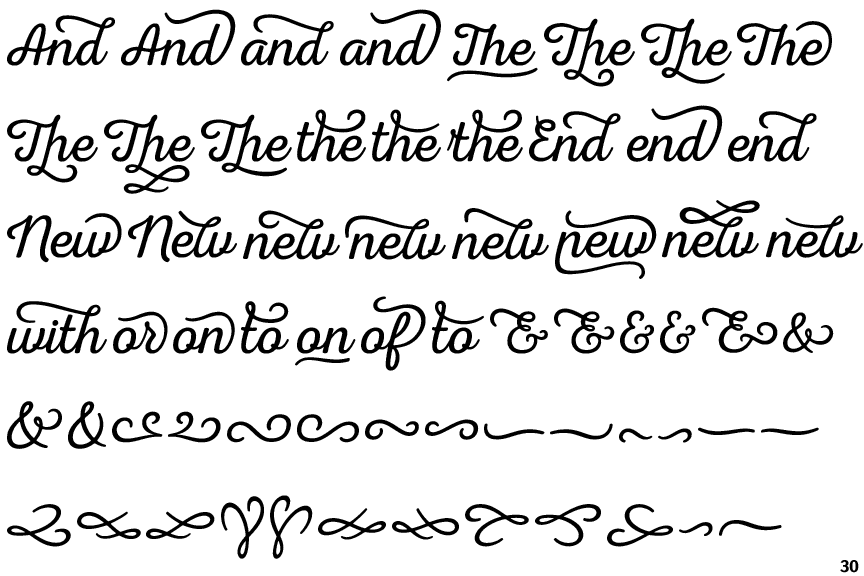 And And and and The The The The
The The The the the the End end end
New New new new new new new new
with or on to on of to & & & & & &
& &
30